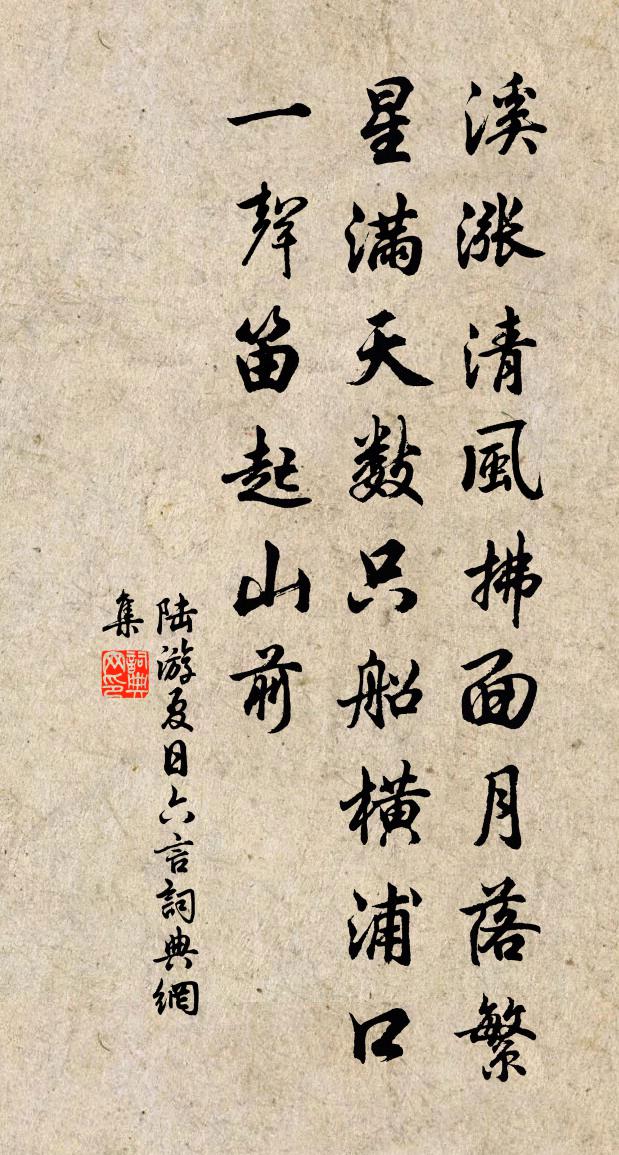 溪漲清風拂面月落繁
星滿天數只船橫浦口
一聲笛起山前
陸游夏日六言詞典網
集
詞典
网印